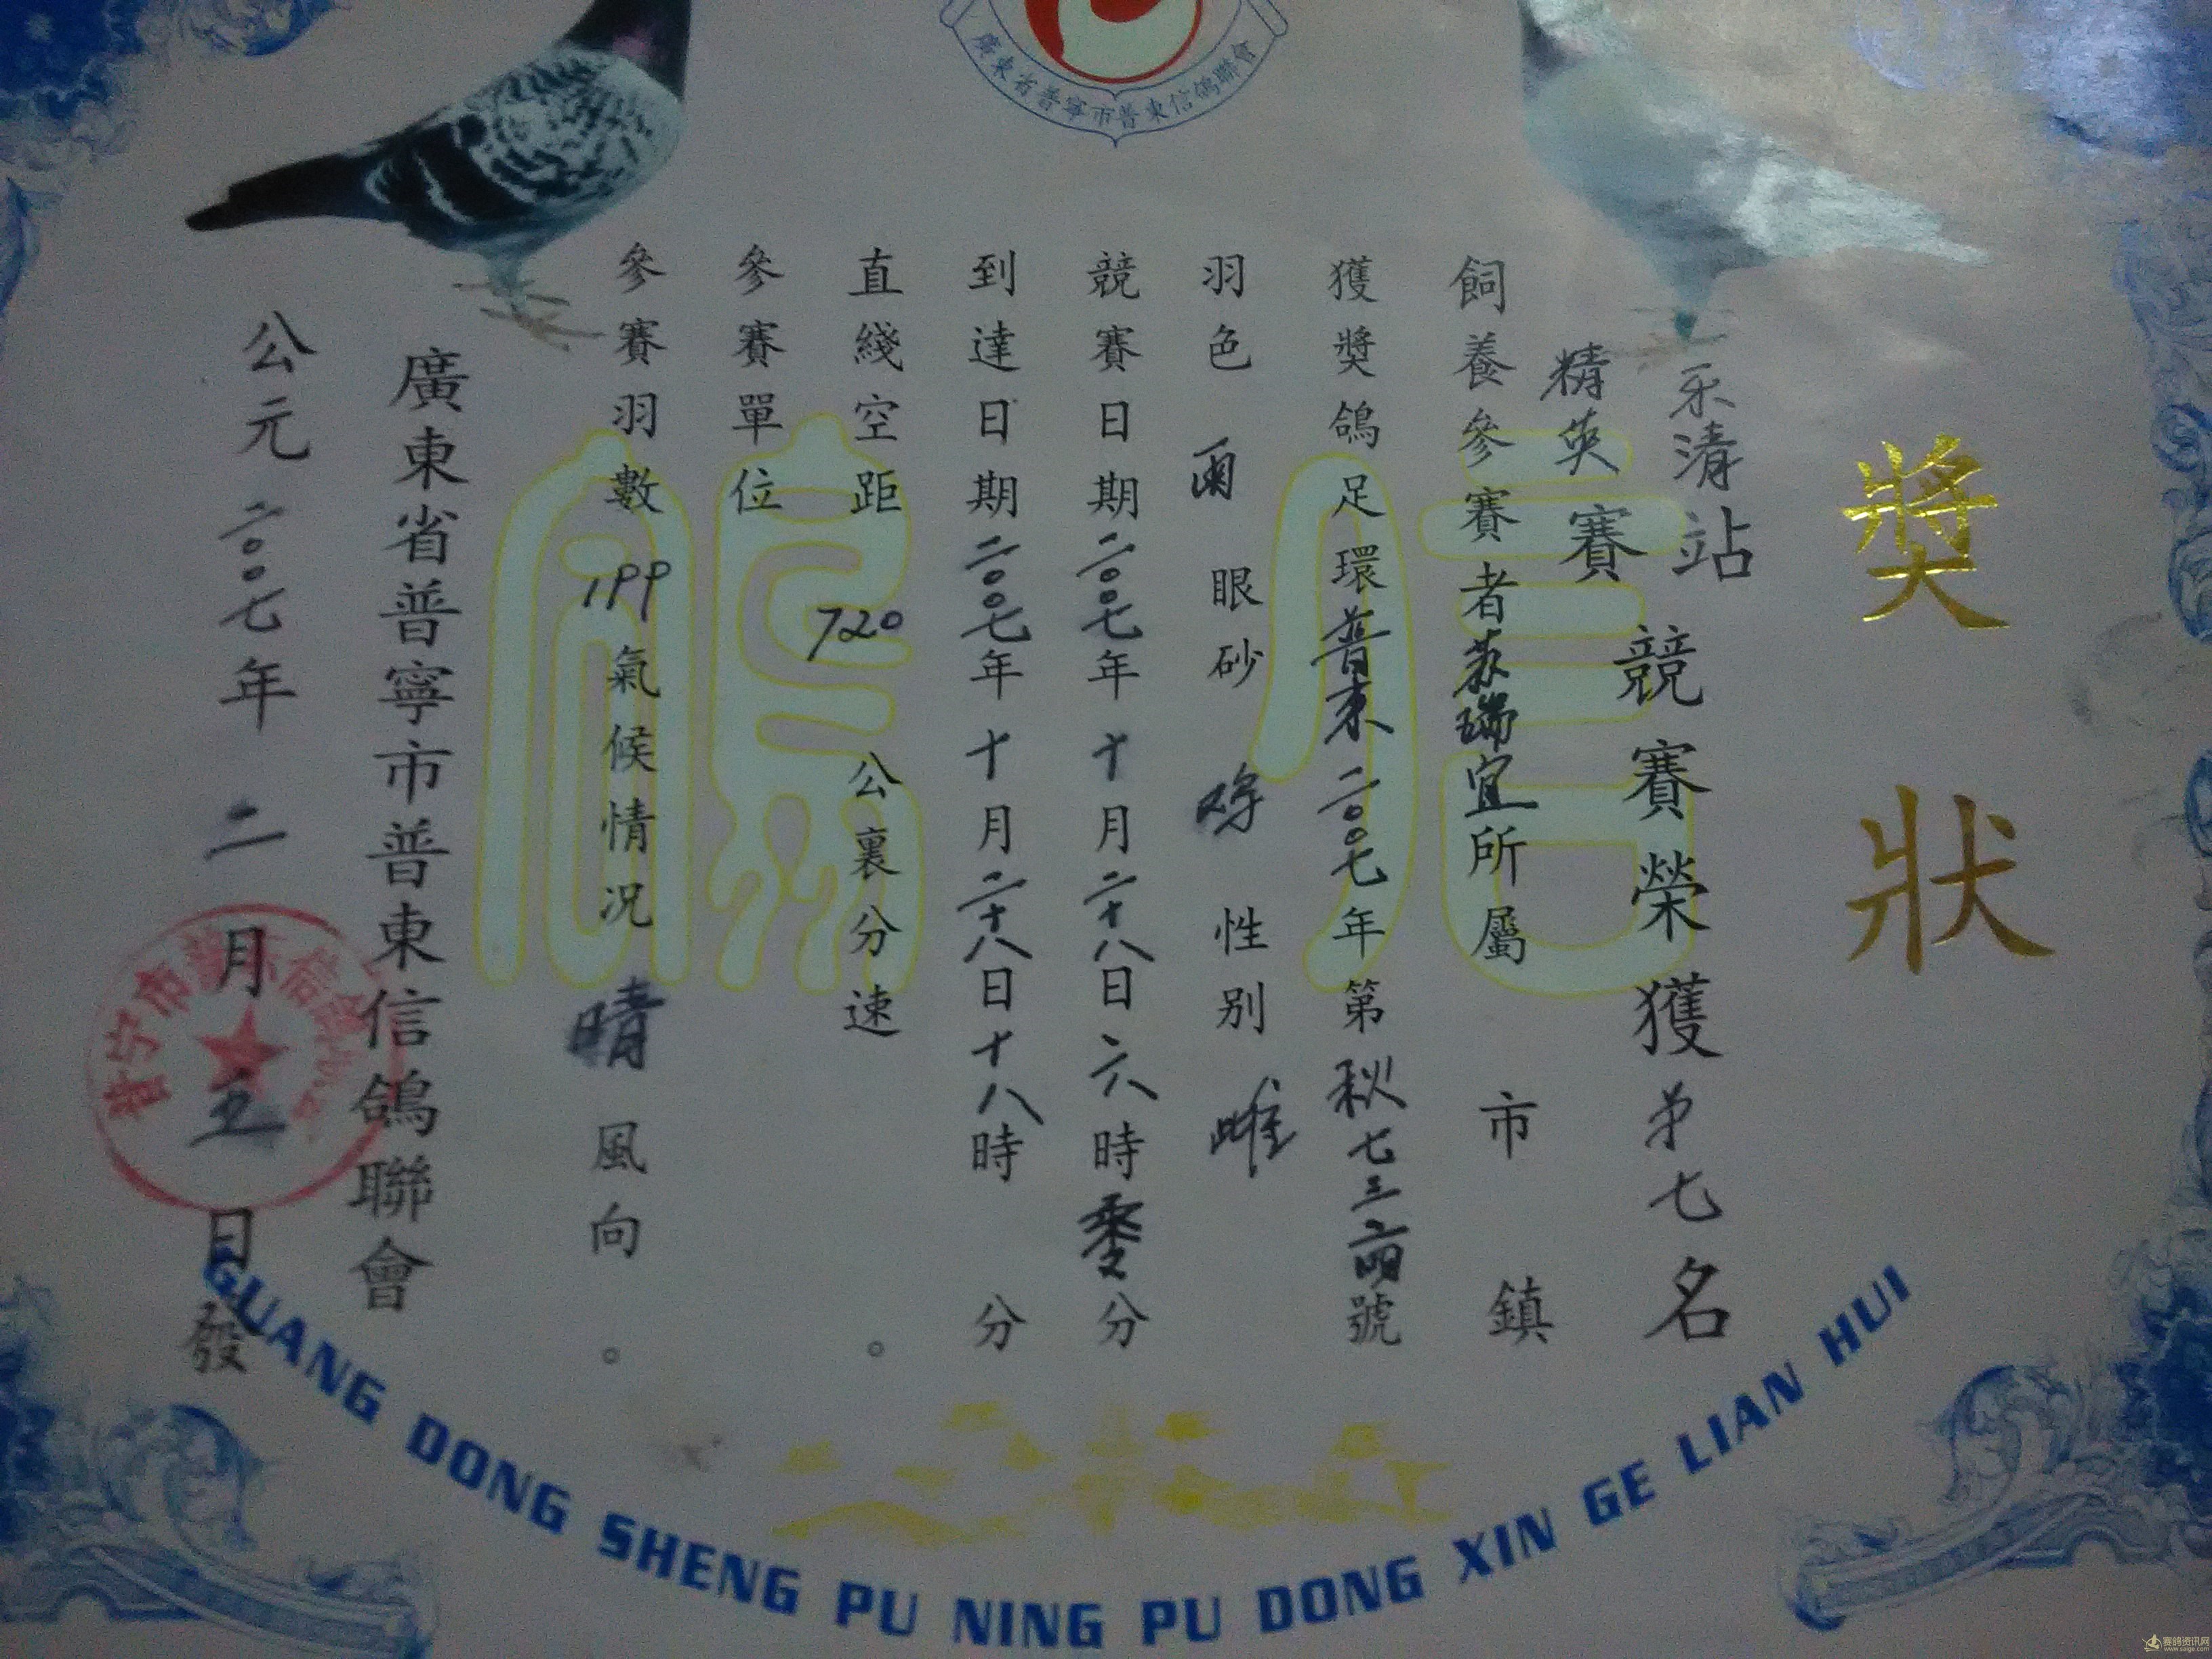 廣東省普寧市普東信鴿聯會
獎狀
乐清站
精英賽
競賽榮獲第七名
飼養參賽者苏瑞宜所屬 市 鎮
獲獎鴿足環普東二00七年第秋七三六四號
羽色 雨 眼砂 鸡 性别 雌
競賽日期二00七年十月二十八日六時零分
到達日期二00七年十月二十八日十八時 分
直綫空距 720 公裏分速 。
參賽單位
參賽羽數 199 氣候情况 晴 風向 。
廣東省普寧市普東信鴿聯會
公元二00七年二月五日發
普宁市普东信鸽
信鴿
GUANG DONG SHENG PU NING PU DONG XIN GE LIAN HUI
赛鸽资讯网
www.saige.com